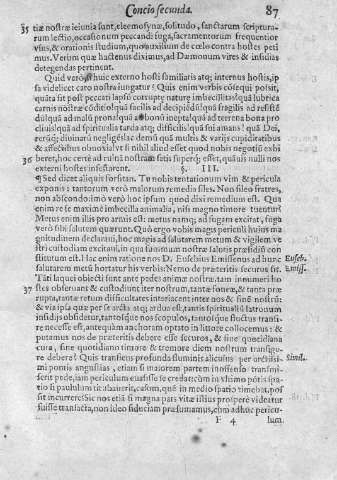 Concio secunda. 87
35 tiæ nostræ ieiunia sunt, eleemosynæ, solitudo, sanctarum scriptura-
rum lectio, occasionum peccandi fuga, sacramentorum frequentior
vsus, & orationis studium, quo auxilium de cœlo contra hostes peti
mus. Verùm quæ hactenus diximus, ad Dæmonum vires & insidias
detegendas pertinent.
Quid verò si huic externo hosti familiaris atq; internus hostis, ip
sa videlicet caro nostra iungatur? Quis enim verbis cõsequi possit,
quàta sit post peccati lapsũ corruptæ naturę imbecillitas? quã lubrica
carnis nostræ cõditio? quã facilis ad decipiẽdũ? quã fragilis ad resistẽ
dũ? quã ad malũ prona? quã ad bonũ inepta? quã ad terrena bona pro
cliuis? quã ad spiritualia tarda atq; difficilis? quã sui amans? quã Dei,
rerũq; diuinarũ negligẽs? ac demũ quã multis & varijs cupiditatibus
& affectibus obnoxia? vt si nihil aliud esset quod nobis negotiũ exhi
36 beret, hoc certè ad ruinã nostram satis superq; esset, quàuis nulli nos
externi hostes infestarent. §. III.
Sed dicet aliquis forsitan. Tu nobis tentationum vim & pericula
exponis: tantorum verò malorum remedia siles. Non sileo fratres,
non abscondo. imò verò hoc ipsum quod dixi remedium est. Qua
enim re se maximè imbecilla animalia, nisi magno timore tuentur?
Metus enim illis pro armis est: metus namq; ad fugam excitat, fuga
verò sibi salutem quærunt. Quò ergo vobis magis periculi huius ma
gnitudinem declaraui, hoc magis ad salutarem metum & vigilem ve
stri custodiam excitaui, in qua summum nostræ salutis præsidiũ con
stitutum est. Hac enim ratione nos D. Eusebius Emissenus ad hunc Euseb.
salutarem metũ hortatur his verbis: Nemo de præteritis securus sit. Emiss.
Tāti laquei obiecti sunt ante pedes animæ nostræ, tam innumeri ho
37 stes obseruant & custodiunt iter nostrum, tantæ foueæ, & tanta præ
rupta, tantæ retum difficultates interiacent inter nos & finẽ nostrũ:
& via ipsa quæ per se arcta atq; ardua est, tantis spiritualiũ latronum
insidijs obsidetur, tantosque nos scopulos, tantosque fluctus transi-
re necesse est, antequàm anchoram optato in littore collocemus: &
putamus nos de præteritis debere esse securos, & sine quotidiana
cura, sine quotidiano timore & tremore diem nostrum transige-
re debere? Quis transiens profunda fluminis alicuius per Simil.
mi pontis angustias, etiam si maiorem partem inoffenso transmi-
serit pede, iam periculum euasisse se credat: cùm in vltimo põtis spa-
tio si paululùm titubauerit, casum, quẽ in medio spatio timebat, pos
sit incurrere? Sic nos etiã si magna pars vitæ illius prosperè videatur
fuisse transacta, non ideo fiduciam præsumamus, cùm adhuc pericu-
F 4 lum